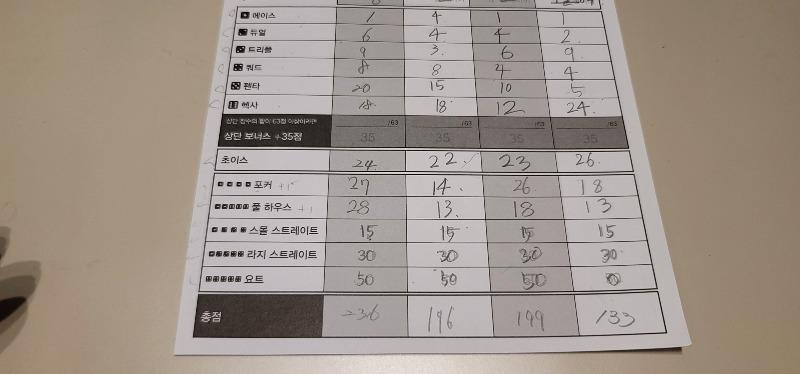 에이스 1 4 1 1
듀얼 6 4 4 2
트리플 9 3 6 9
쿼드 8 8 4 4
펜타 20 15 10 5
헥사 18 18 12 24
상단 점수의 합이 63점 이상이라면 /63 /63 /63 /63
상단 보너스 +35점 35 35 35 35
초이스 24 22 23 26
포커 +1 27 14 26 18
풀 하우스 +1 28 13 18 13
스몰 스트레이트 15 15 15 15
라지 스트레이트 30 30 30 30
요트 50 50 50
총점 236 196 199 133